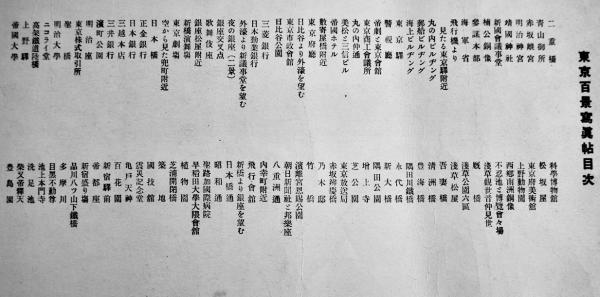 東京百景寫眞帖目次
二重橋
青山御所
赤坂離宮
明治神宮
靖國神社
新國會議事堂
楠公銅像
參謀本部
海軍省
飛行機より
見たる東京驛附近
丸の内ビルヂング
郵船ビルヂング
海上ビルヂング
東京驛
警視廳
帝劇と東京會館
東京商工會議所
丸の内仲通
美松と三信ビル
帝國ホテル
數寄屋橋附近
東京府廳
日比谷より外濠を望む
東京市政會館
日比谷公園
三菱銀行
日本勸業銀行
外濠より新議事堂を望む
夜の銀座(二景)
銀座交叉點
歌舞伎座
銀座松屋附近
新橋演舞場
東京劇場
空から見た兜町附近
日本橋
三越本店
日本銀行
正金銀行
三井銀行
濱町公園
明治座
東京株式取引所
聖橋
明治大學
ニコライ堂
高架鐵道陸橋
上野驛
帝國大學
科學博物館
松坂屋
東京府美術館
上野動物園
西郷南洲銅像
不忍池と博覽會々場
淺草觀世音仲見世
淺草公園六區
廐橋
淺草松屋
吾妻橋
清洲橋
豊海橋
隅田川鐵橋
永代橋
新大橋
隅田公園
增上寺
芝公園
東京放送局
赤坂辨慶橋
乃木邸
竹橋
濱離宮恩賜公園
朝日新聞社と邦樂座
八重洲通
内幸町附近
飛行會館
新橋より銀座を望む
日本橋通
昭和通
聖路加國際病院
早稻田大學大隈會館
植物園
芝浦開閉橋
築地
國技館
震災記念堂
龜戸天神
百花園
新宿驛前
帝都座
新宿盛り場
品川八ツ山下鐵橋
多摩川
目黒不動尊
池上本門寺
洗足池
柴又帝釋天
豊島園